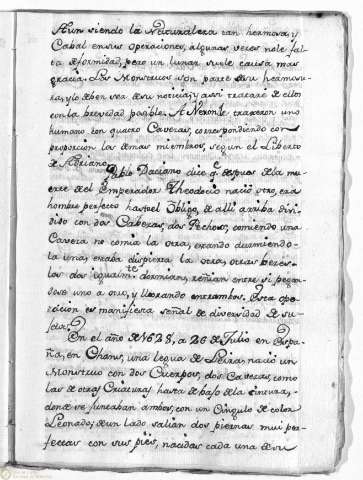 Aun siendo la Naturaleza tan hermosa, y
Cabal en sus operaciones, algunas veces no le fal-
ta deformidad, pero un lunar suele causar mas
gracia. Los Monstruos son parte de su hermosu-
ra, y lo deben ser de su noticia; y assi trataré de ellos
con la brevedad posible. A Nerón le traxeron uno
humano con quatro Cavezas, correspondiendo con
proporcion las demas miembros, segun el Liberto
de Adriano.
Pablo Daciano dice q.e despues de la mu-
erte del Emperador Theodocio nació otro, era
hombre perfecto hasta el Obligo, de alli arriba divi-
dido con dos Cabezas, dos Pechos; comiendo una
Caveza no comia la otra, estando durmiendo
la una, estaba dispierta la otra, otras veces
las dos igualm.te dormian, reñian entre si pegan-
dose uno a otro, y llorando entrambos. Esta ope-
racion es manifiesta señal de diversidad de su-
getos.
En el año de 1628, a 26 de Julio en Espa-
ña, en Chans, una legua de Leiza, nació un
Monstruo con dos Cuerpos, dos Cavezas, como
las de otras Criaturas hasta de bajo de la cintura,
donde se juntaban ambos, con un Cingulo de color
Leonado; de un lado salian dos piernas mui per-
fectas con sus pies, nacidas cada una de su